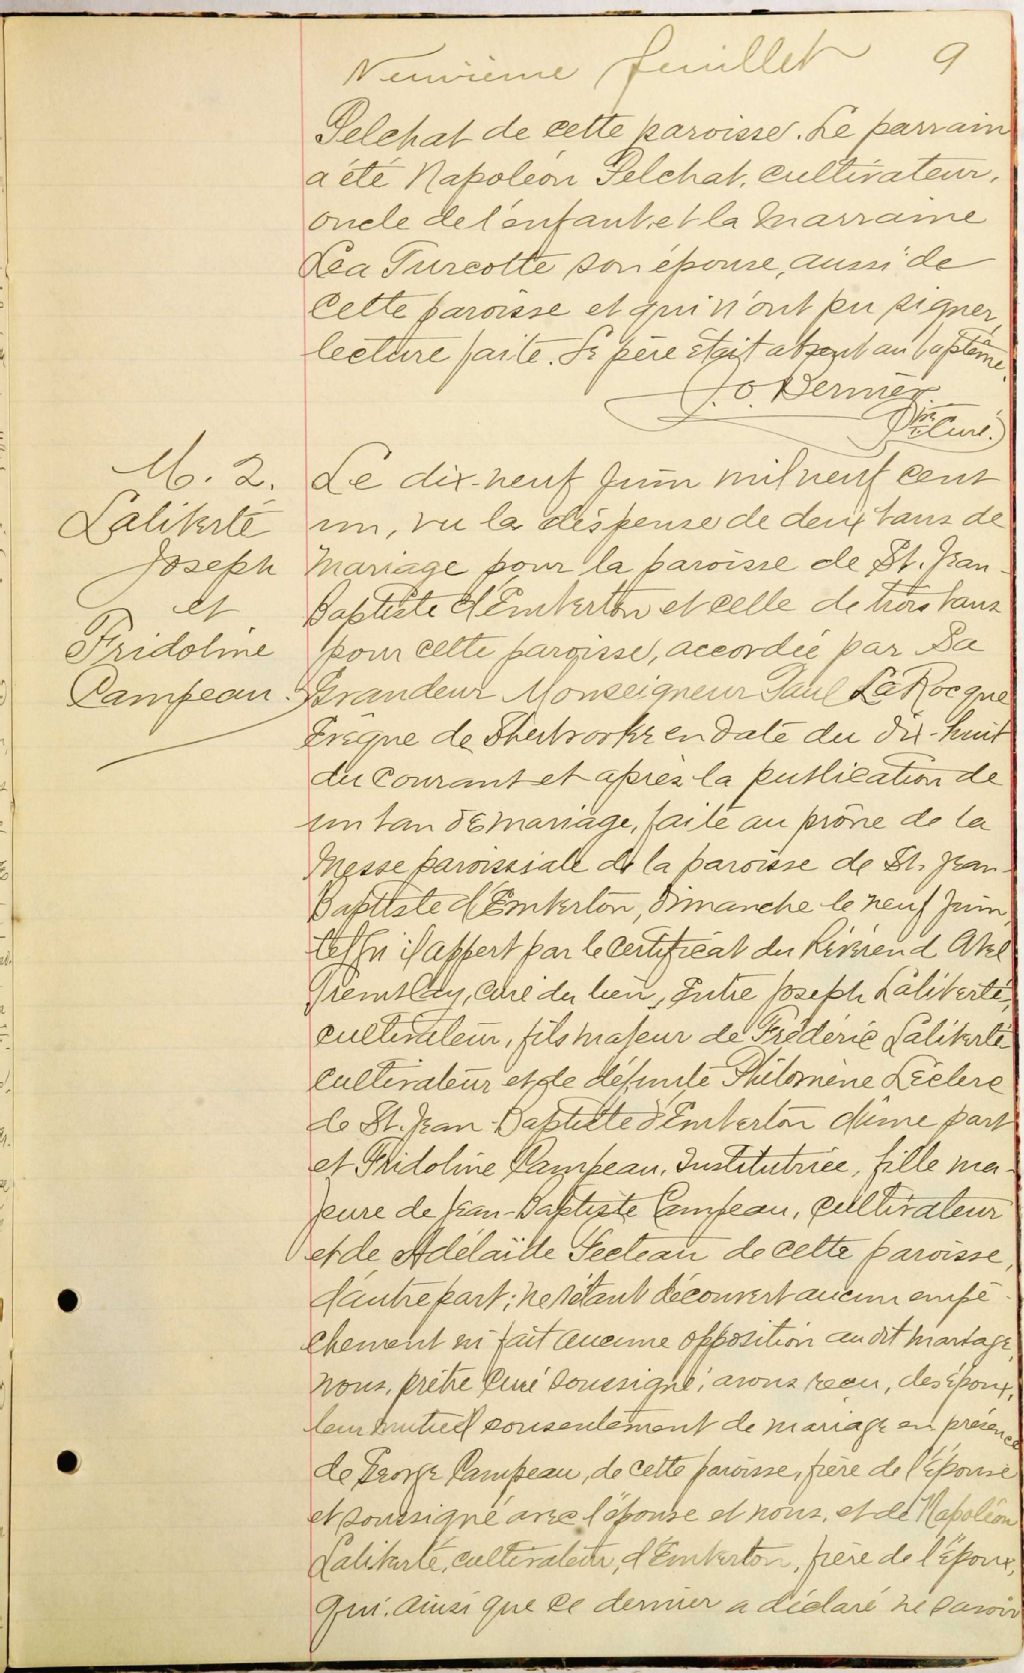 Neuvième feuillet 9
Pelchat de cette paroisse. Le parrain
a été Napoléon Pelchat, cultivateur,
oncle de l'enfant et la marraine
Léa Turcotte son épouse, aussi de
cette paroisse et qui n'ont pu signer,
lecture faite. Le père était absent au baptême.
J. O. Bernier
Ptre Curé.
M. 2.
Laliberté
Joseph
et
Fridoline
Campeau.
Le dix-neuf Juin mil neuf cent
un, vu la dispense de deux bans de
mariage pour la paroisse de St. Jean-
Baptiste d'Emberton et celle de trois bans
pour cette paroisse, accordée par Sa
Grandeur Monseigneur Paul LaRocque
Évêque de Sherbrooke en date du dix-huit
du courant et après la publication de
un ban de mariage, faite au prône de la
Messe paroissiale de la paroisse de St. Jean-
Baptiste d'Emberton, dimanche le neuf Juin,
tel qu'il appert par le certificat du Révérend Abel
Tremblay, curé du lieu, Entre Joseph Laliberté,
cultivateur, fils majeur de Frédéric Laliberté
cultivateur et de défunte Philomène Leclerc
de St. Jean-Baptiste d'Emberton d'une part
et Fridoline Campeau, Institutrice, fille ma-
jeure de Jean-Baptiste Campeau, cultivateur
et de Adélaïde Fecteau de cette paroisse,
d'autre part; ne s'étant découvert aucun empê-
chement ni fait aucune opposition au dit mariage,
nous, prêtre curé soussigné, avons reçu, des époux,
leur mutuel consentement de mariage en présence
de George Campeau, de cette paroisse, frère de l'épouse
et soussigné avec l'épouse et nous, et de Napoléon
Laliberté, cultivateur, d'Emberton, frère de l'époux,
qui, ainsi que ce dernier a déclaré ne savoir